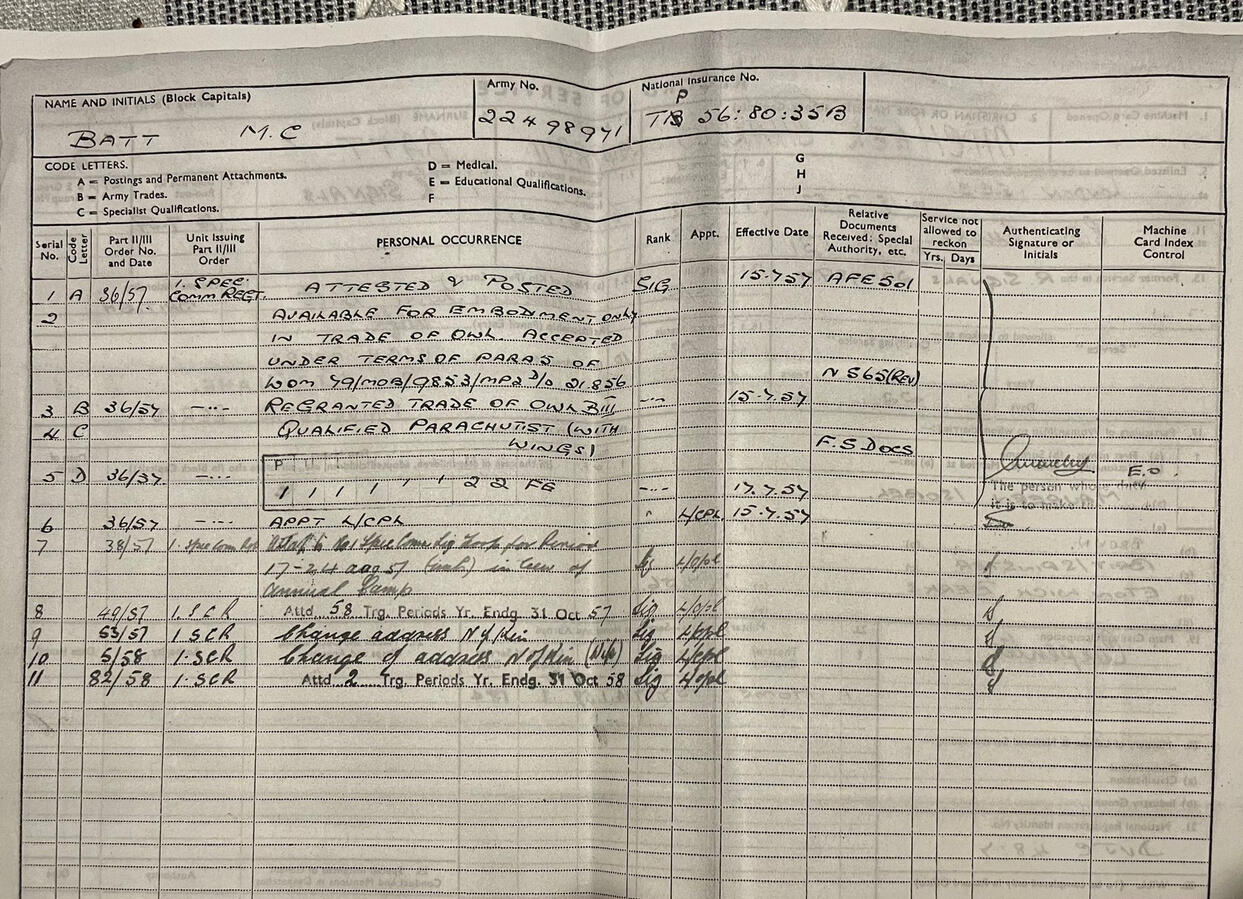 NAME AND INITIALS (Block Capitals)
BATT M.C
Army No.
22498971
National Insurance No.
P
TB 56:80:35B
CODE LETTERS.
A = Postings and Permanent Attachments.
B = Army Trades.
C = Specialist Qualifications.
D = Medical.
E = Educational Qualifications.
F
G
H
J
Serial No.
Code Letter
Part II/III Order No. and Date
Unit Issuing Part II/III Order
PERSONAL OCCURRENCE
Rank
Appt.
Effective Date
Relative Documents Received: Special Authority, etc.
Service not allowed to reckon
Yrs. Days
Authenticating Signature or Initials
Machine Card Index Control
1 A 36/57 1. SPEC. COMM REGT. ATTESTED & POSTED SIG 15.7.57 AFE501
2 AVAILABLE FOR EMBODIMENT ONLY
IN TRADE OF OWL. ACCEPTED
UNDER TERMS OF PARA 5 OF
WOM 79/MOB/9853/MP2 D/D 21.856 NS65(REV)
3 B 36/57 -..- REGRANTED TRADE OF OWL BIII -..- 15.7.57
4 C QUALIFIED PARACHUTIST (WITH
WINGS) F.S DOCS
5 D 36/57 -..- P U
1 1 1 1 1 1 2 2 FG -..- 17.7.57 E.O.
The person whose duty
it is to make
6 36/57 -..- APPT L/CPL " L/CPL 15.7.57
7 38/57 1. Spec Com Rgt Attd to No1 Spec Com Sig Troop for Period
17-24 Aug 57 in lieu of Sig L/Cpl
Annual Camp
8 49/57 1. SCR Attd. 58 Trg. Periods Yr. Endg. 31 Oct 57 Sig L/Cpl
9 53/57 1. SCR Change address N of Kin Sig L/Cpl
10 5/58 1. SCR Change of address N of Kin (Wife) Sig L/Cpl
11 82/58 1. SCR Attd 2 Trg. Periods Yr. Endg. 31 Oct 58 Sig L/Cpl